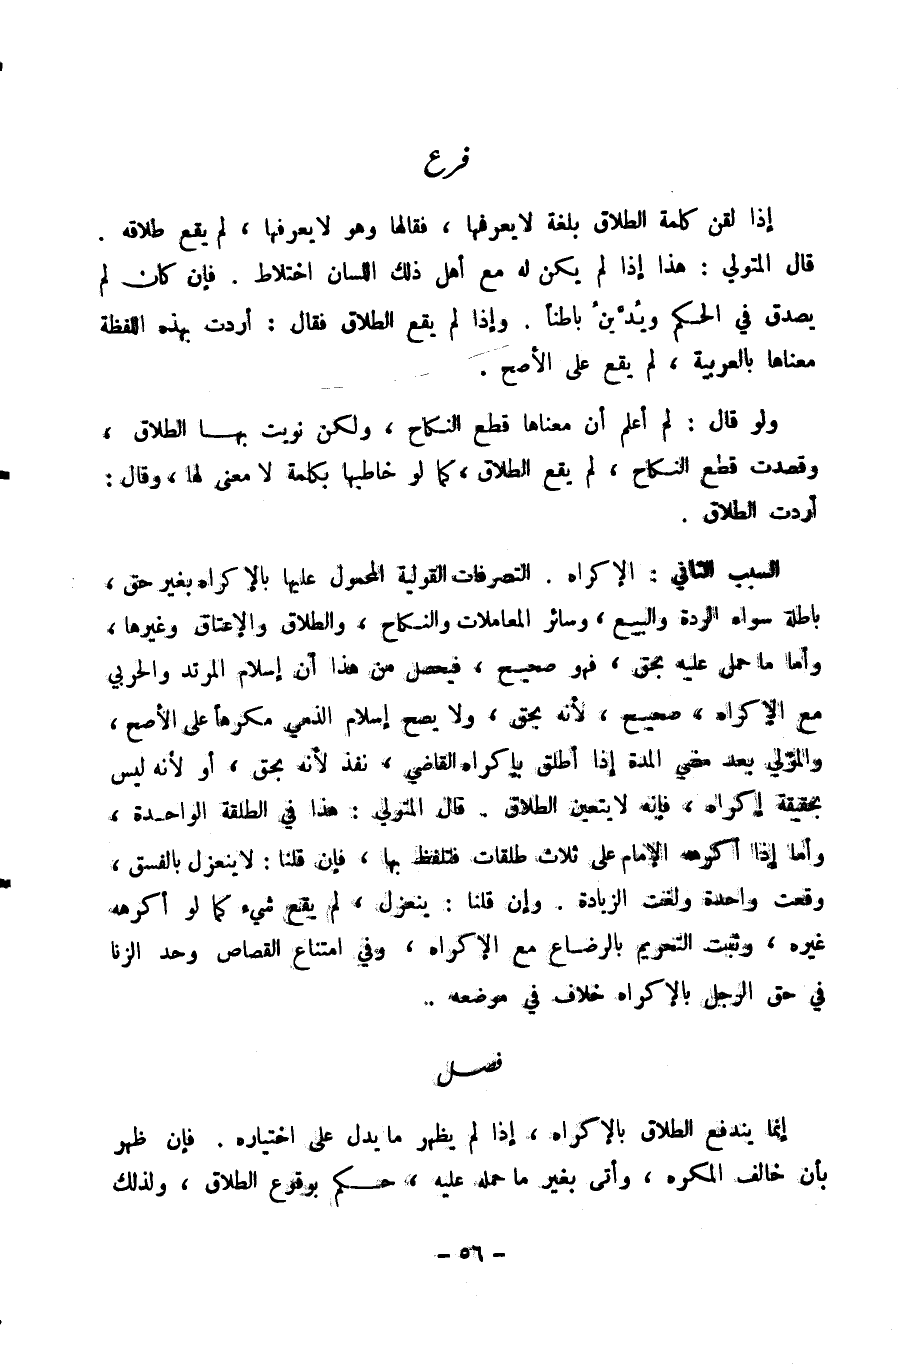 فرع
إذا لقن كلمة الطلاق بلغة لا يعرفها ، فقالها وهو لا يعرفها ، لم يقع طلاقه .
قال المتولي : هذا إذا لم يكن له مع أهل ذلك اللسان اختلاط . فإن كان لم
يصدق في الحكم ويُدَيَّنُ باطناً . وإذا لم يقع الطلاق فقال : أردت بهذه اللفظة
معناها بالعربية ، لم يقع على الأصح .
ولو قال : لم أعلم أن معناها قطع النكاح ، ولكن نويت بها الطلاق ،
وقصدت قطع النكاح ، لم يقع الطلاق ، كما لو خاطبها بكلمة لا معنى لها ، وقال :
أردت الطلاق .
السبب الثاني : الإكراه . التصرفات القولية المحمول عليها بالإكراه بغير حق ،
باطلة سواء الردة والبيع ، وسائر المعاملات والنكاح ، والطلاق والإعتاق وغيرها ،
وأما ما حمل عليه بحق ، فهو صحيح ، فيحصل من هذا أن إسلام المرتد والحربي
مع الإكراه ، صحيح ، لأنه بحق ، ولا يصح إسلام الذمي مكرهاً على الأصح ،
والمؤلي بعد مضي المدة إذا أطلق بإكراه القاضي ، نفذ لأنه بحق ، أو لأنه ليس
بحقيقة إكراه ، فإنه لا يتعين الطلاق . قال المتولي : هذا في الطلقة الواحدة ،
وأما إذا أكرهه الإمام على ثلاث طلقات فتلفظ بها ، فإن قلنا : لا ينعزل بالفسق ،
وقعت واحدة ولغت الزيادة . وإن قلنا : ينعزل ، لم يقع شيء كما لو أكرهه
غيره ، وثبت التحريم بالرضاع مع الإكراه ، وفي امتناع القصاص وحد الزنا
في حق الرجل بالإكراه خلاف في موضعه ..
فصل
إنما يندفع الطلاق بالإكراه ، إذا لم يظهر ما يدل على اختياره . فإن ظهر
بأن خالف المكره ، وأتى بغير ما حمله عليه ، حكم بوقوع الطلاق ، ولذلك
- ٥٦ -